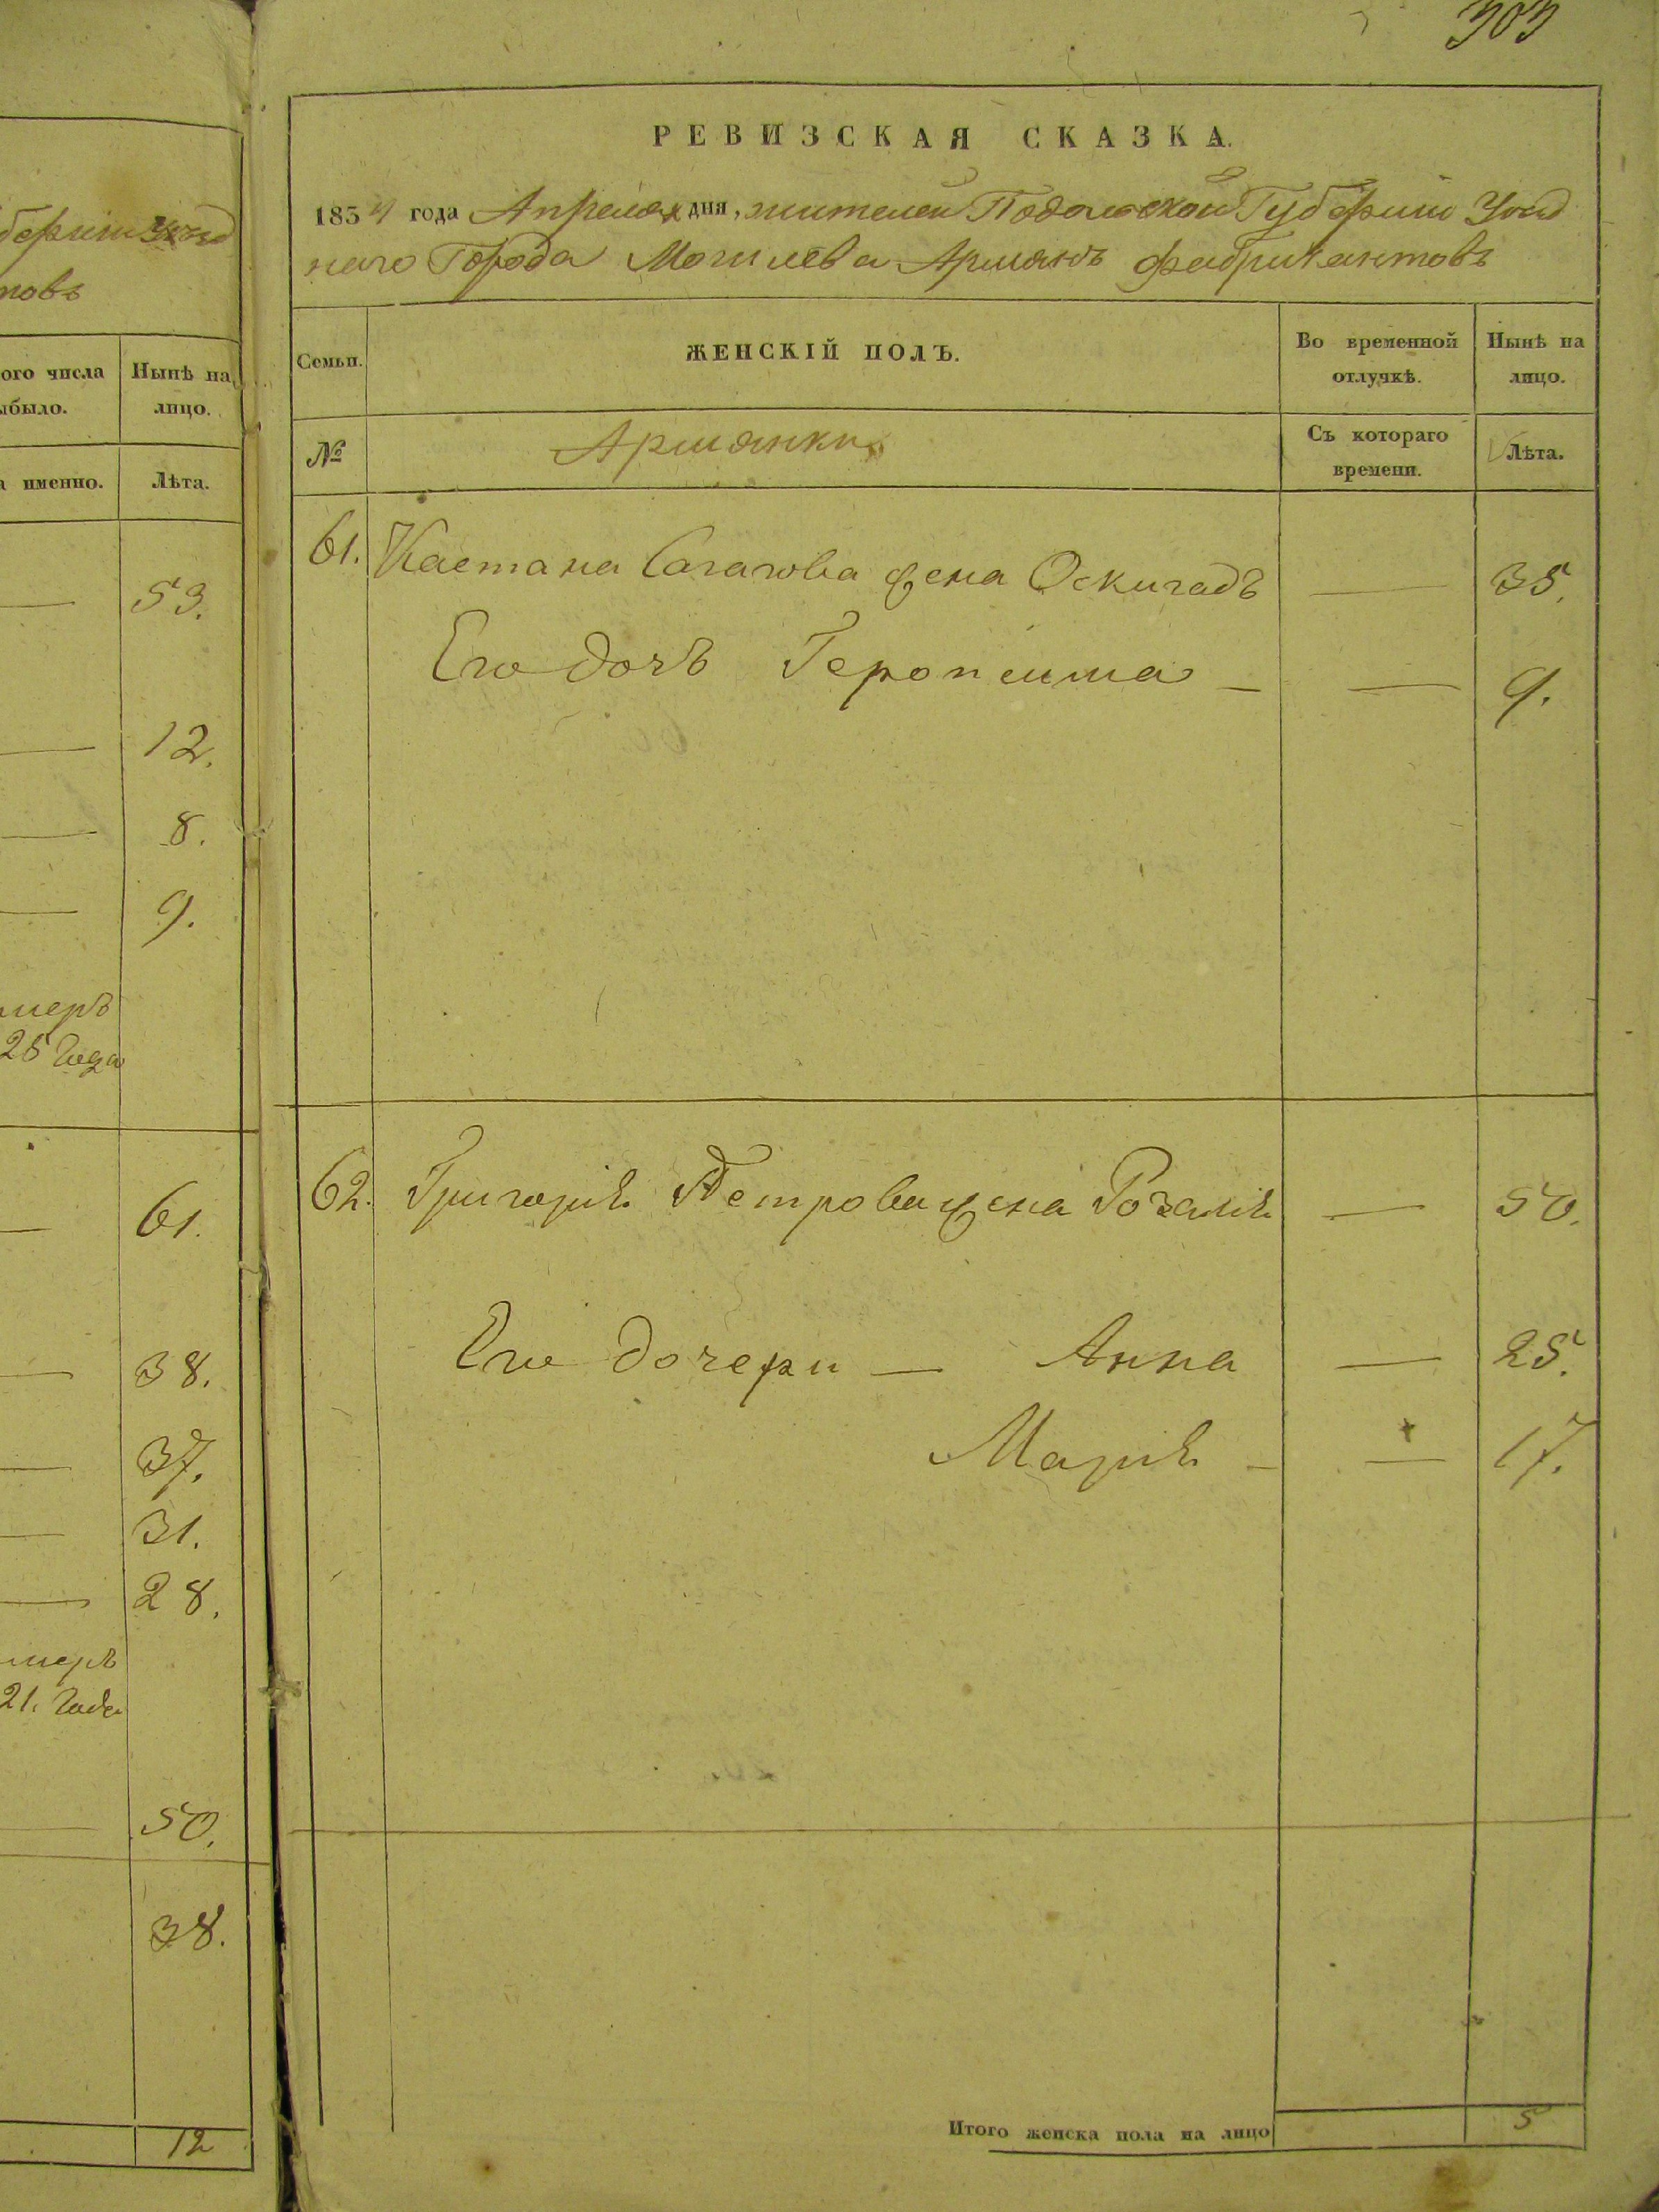 303
РЕВИЗСКАЯ СКАЗКА.
1834 года Апреля дня, жителей Подольской Губернии Уезд
наго Города Могилева Армянъ фабрикантовъ
Семьи.
ЖЕНСКІЙ ПОЛЪ.
Во временной
отлучкѣ.
Нынѣ на
лицо.
№
Армянки
Съ котораго
времени.
Лѣта.
61. Кастана жена — 35.
Его дочъ — — 9.
62. Григорія Петрова жена Розалія — 50.
Его дочери — Анна — 25.
Марія — — 17.
Итого женска пола на лицо 5
беріи Уезд
товъ
ого числа
ыбыло.
Нынѣ на
лицо.
а именно.
Лѣта.
— 53.
— 12.
— 8.
— 9.
меръ
25 Года
— 61.
— 38.
— 37.
— 31.
— 28.
меръ
21. Года
— 50.
38.
12